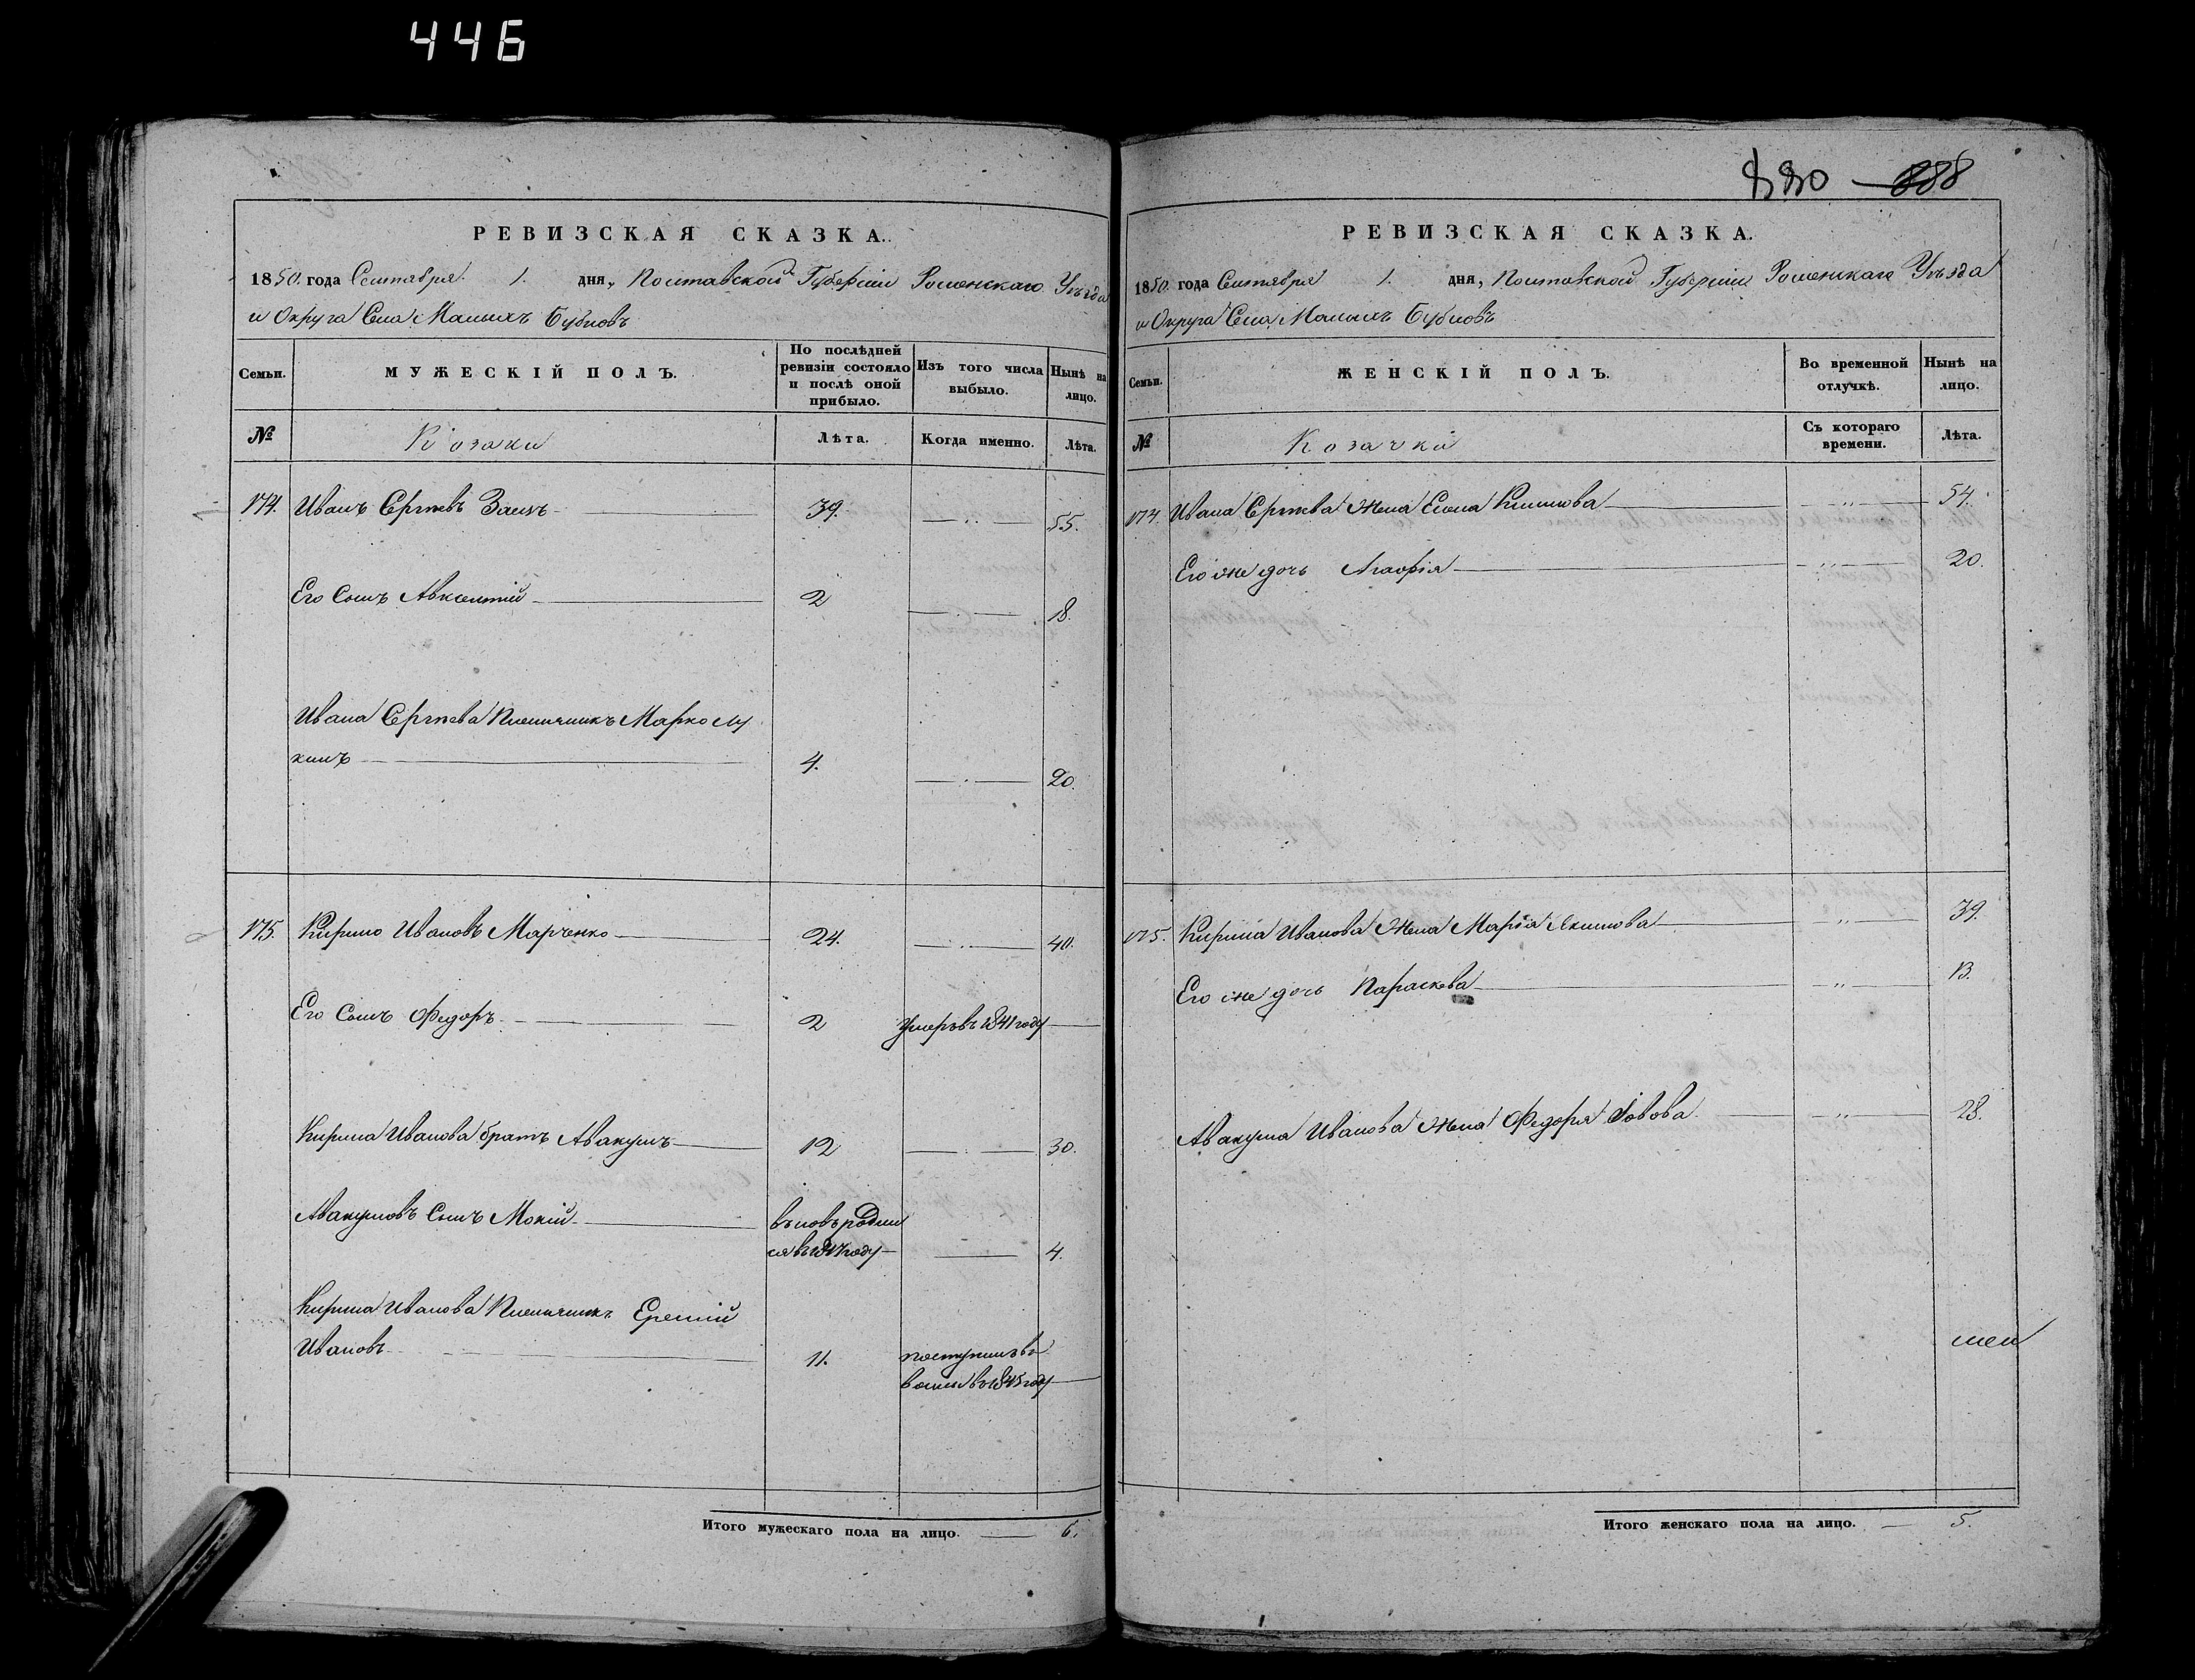 446
880 888
РЕВИЗСКАЯ СКАЗКА.
1850. года Сентября 1. дня, Полтавской Губерніи Роменскаго Уѣзда
и Округа Села Малыхъ Бубновъ
Семьи.
МУЖЕСКІЙ ПОЛЪ.
По послѣдней ревизіи состояло и послѣ оной прибыло.
Изъ того числа выбыло.
Нынѣ на лицо.
№ Козаки Лѣта. Когда именно. Лѣта.
174. Иванъ Сергѣевъ Заецъ 39. 55.
Его Сынъ Авксентій 2 18.
Ивана Сергѣева Племянникъ Марко Лу
кинъ 4. 20.
175. Кирило Ивановъ Марченко 24. 40.
Его Сынъ Федоръ 2 Умеръ въ 1841 году
Кирила Иванова братъ Авакумъ 12 30.
Авакумовъ Сынъ Мокій вновь родил
ся въ 1847 году 4.
Кирила Иванова Племянникъ Еремій
Ивановъ 11. поступилъ въ
въ 1845 году
Итого мужескаго пола на лицо. 6.
РЕВИЗСКАЯ СКАЗКА.
1850. года Сентября 1. дня, Полтавской Губерніи Роменскаго Уѣзда
и Округа Села Малыхъ Бубновъ
Семьи.
ЖЕНСКІЙ ПОЛЪ.
Во временной отлучкѣ.
Нынѣ на лицо.
№ Козачки Съ котораго времени. Лѣта.
174. Ивана Сергѣева Жена Елена Климова 54.
Его же дочь Агафія 20.
175. Кирила Иванова Жена Марія Якимова 39.
Его же дочь Параскева 13.
Авакума Иванова Жена Федора Іовова 28.
Итого женскаго пола на лицо. 5.